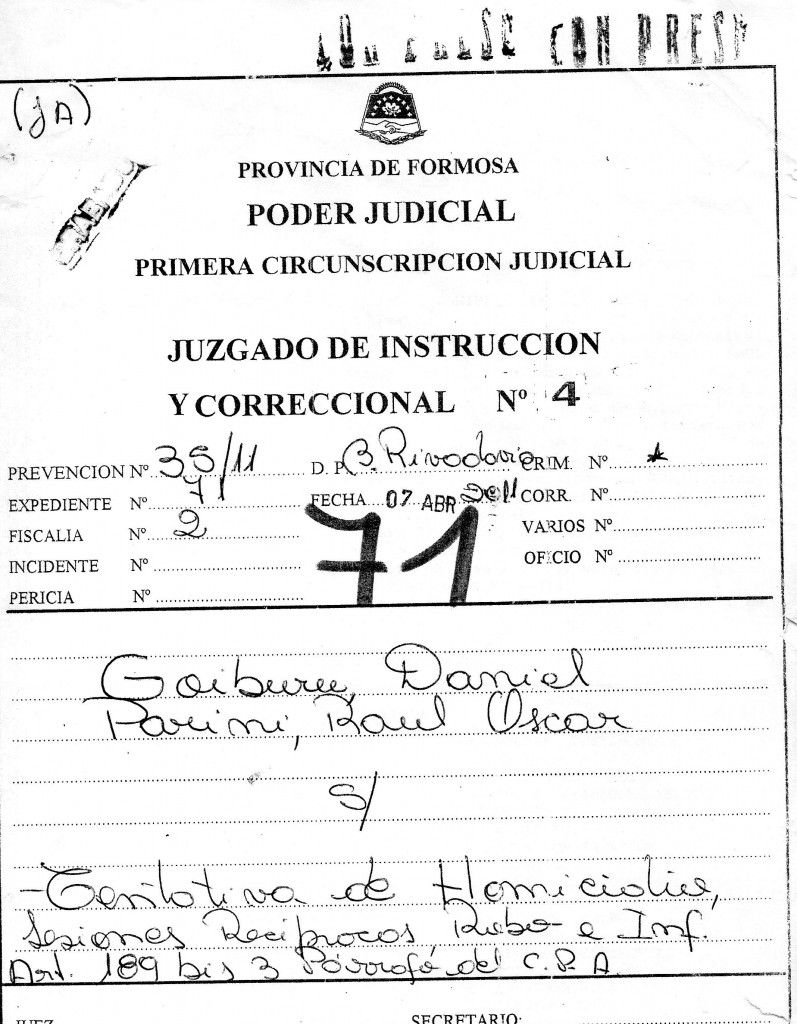 CON PRESO CON PRESO
(JA)
PROVINCIA DE FORMOSA
PODER JUDICIAL
PRIMERA CIRCUNSCRIPCION JUDICIAL
JUZGADO DE INSTRUCCION
Y CORRECCIONAL Nº 4
PREVENCION Nº 35/11 D. P. B. Rivadavia CRIM. Nº
EXPEDIENTE Nº 71 FECHA 07 ABR 2011 CORR. Nº
FISCALIA Nº 2 VARIOS Nº
INCIDENTE Nº OFICIO Nº
PERICIA Nº
71
Goiburu, Daniel
Parini, Raul Oscar
S/
-Tentativa de Homicidio,
Lesiones Reciprocas, Robo e Inf.
Art. 189 bis 3 Párrafo del C.P.A.
JUEZ SECRETARIO: